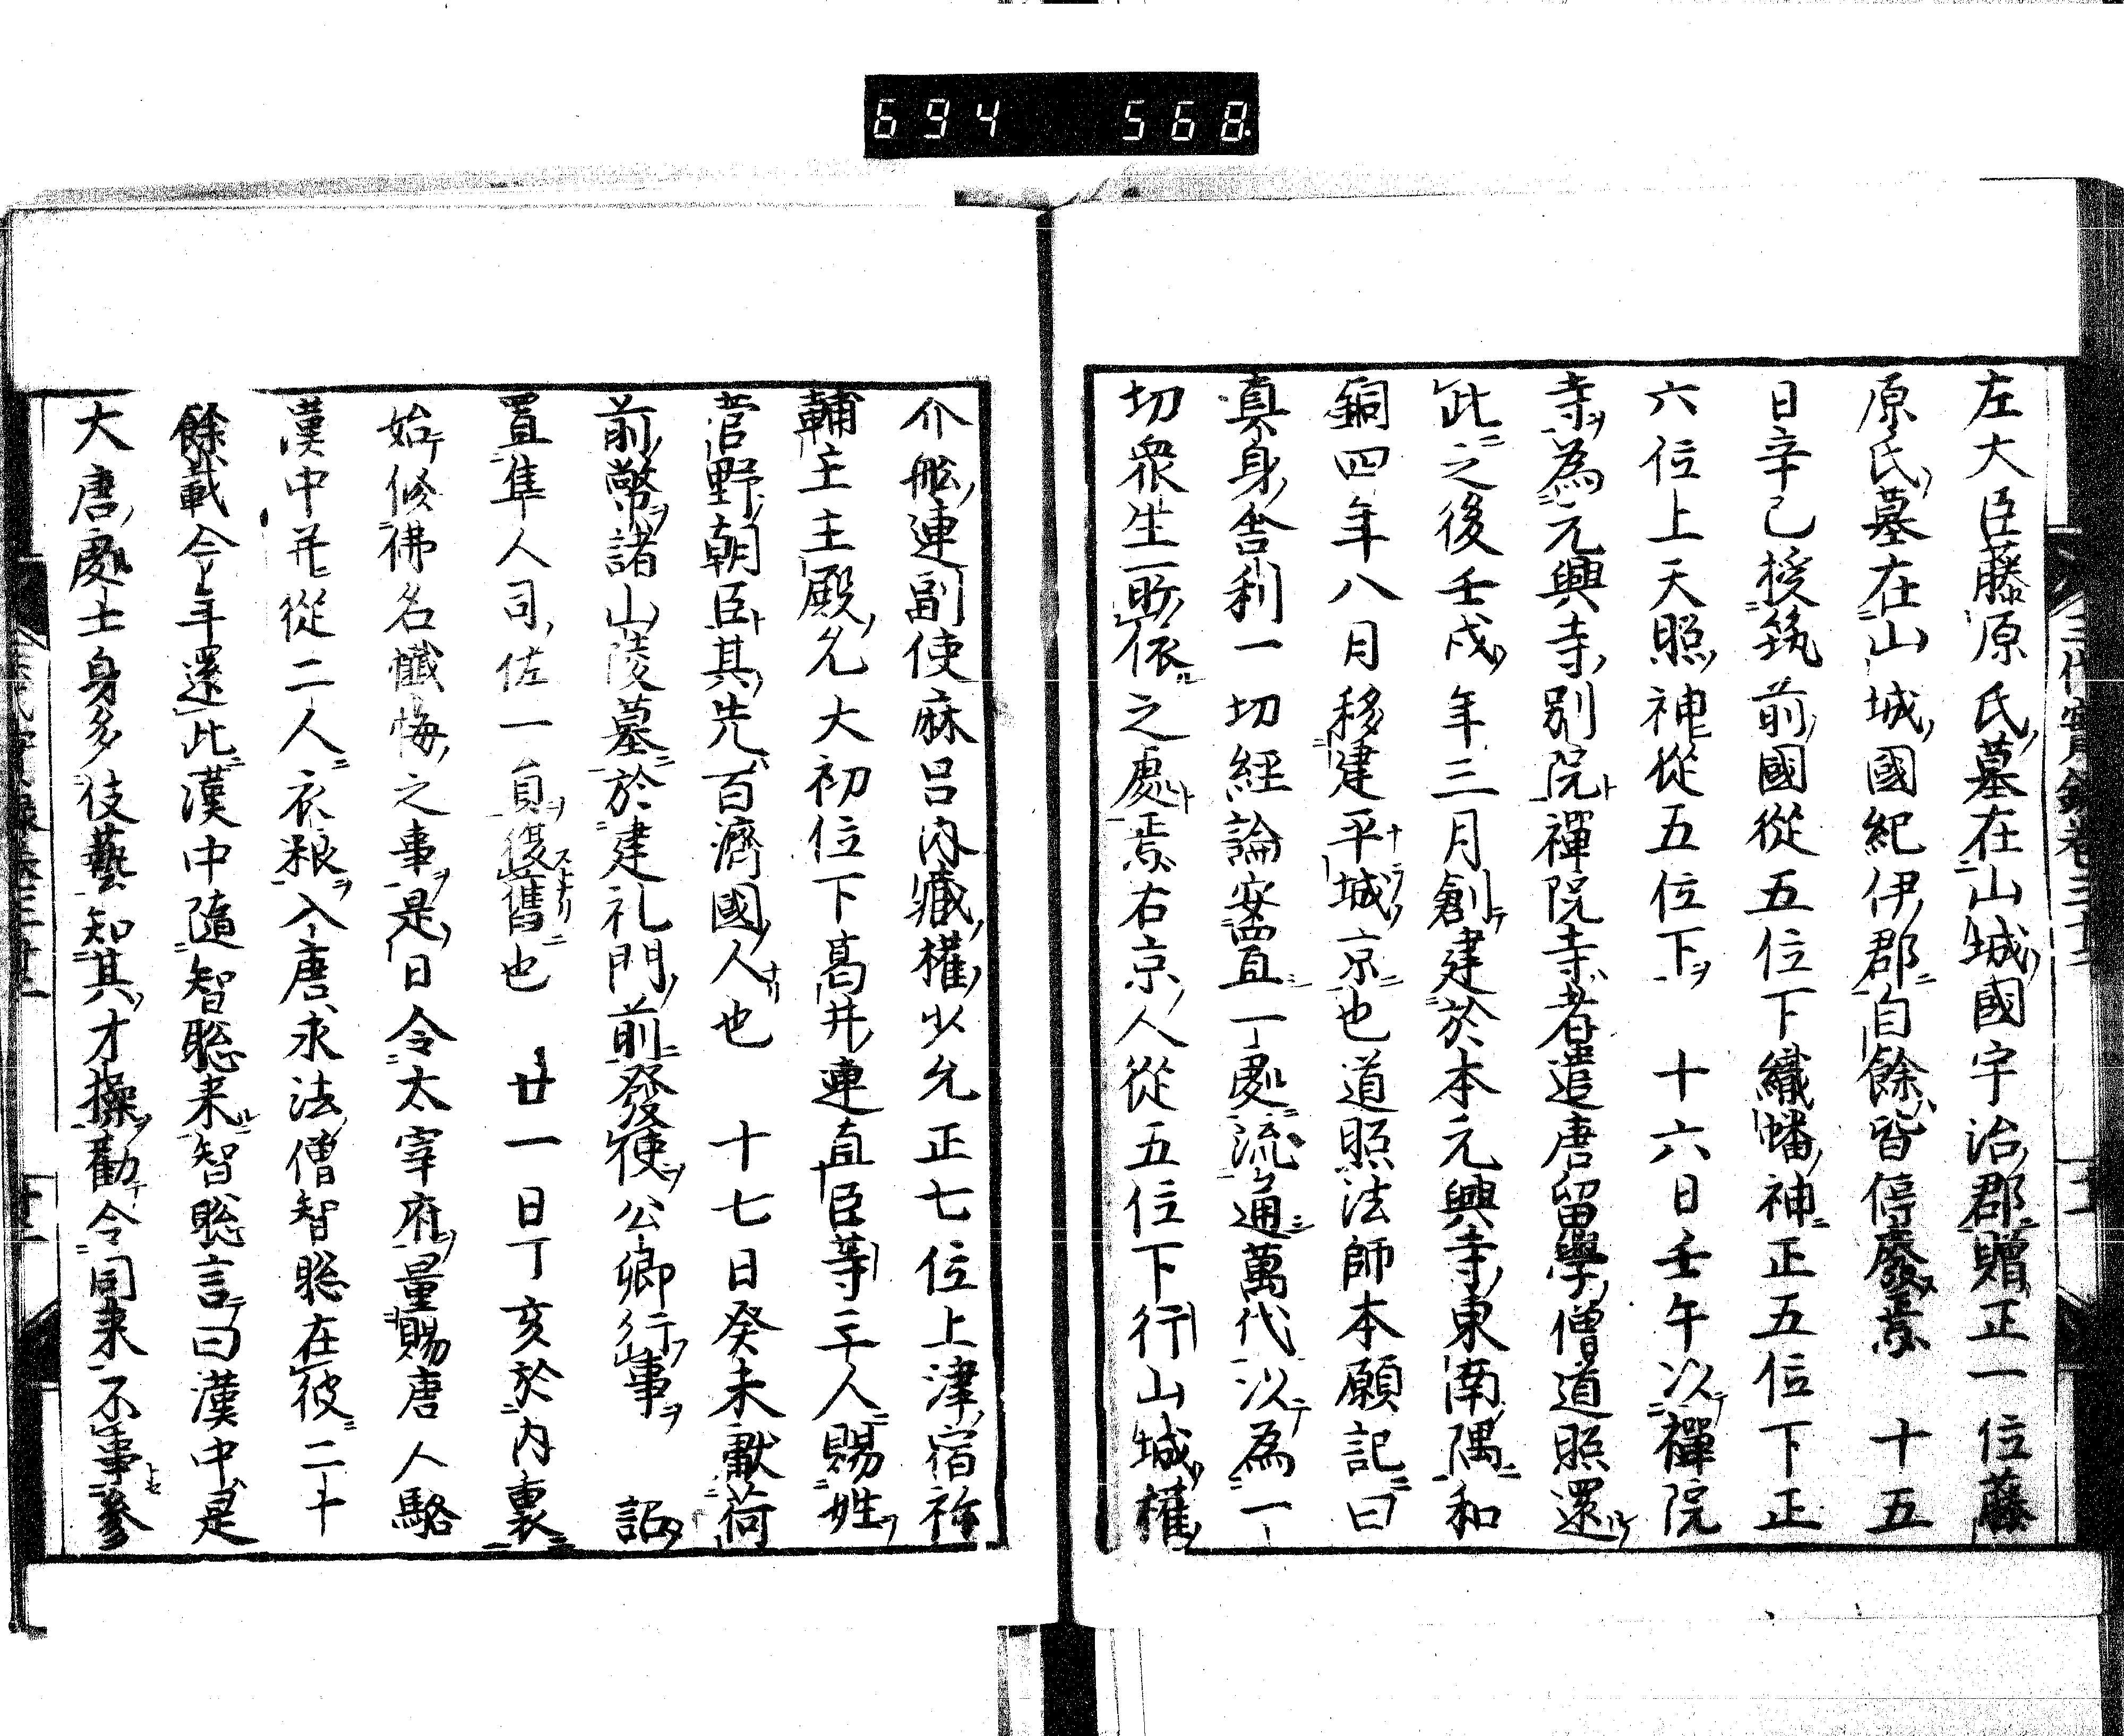 694 568.
左大臣藤原氏墓在山城國宇治郡贈正一位藤
原氏墓在山城國紀伊郡自餘皆停廢焉 十五
日辛己授筑前國從五位下織幡神正五位下正
六位上天照神從五位下 十六日壬午以禪院
寺為元興寺別院禪院寺者遣唐留學僧道照還
此之後壬戌年三月創建於本元興寺東南隅和
銅四年八月移建平城京也道照法師本願記曰
真身舎利一切経論安置一処流通萬代以為一
切衆生所依之處焉右京人從五位下行山城權
介舩連副使麻呂内蔵權少允正七位上津宿祢
輔主主殿允大初位下髙井連直臣等三人賜姓
菅野朝臣其先百濟國人也 十七日癸未獻荷
前幣諸山陵墓於建礼門前發使公卿行事 詔
置隼人司佐一員復舊也 廿一日丁亥於内裏
始修佛名懺悔之事是日令太宰府量賜唐人駱
漢中并從二人衣粮入唐求法僧智聡在彼二十
餘載今年還此漢中隨智聡来智聡言曰漢中是
大唐處士身多伎藝知其才操勸令同来不事參